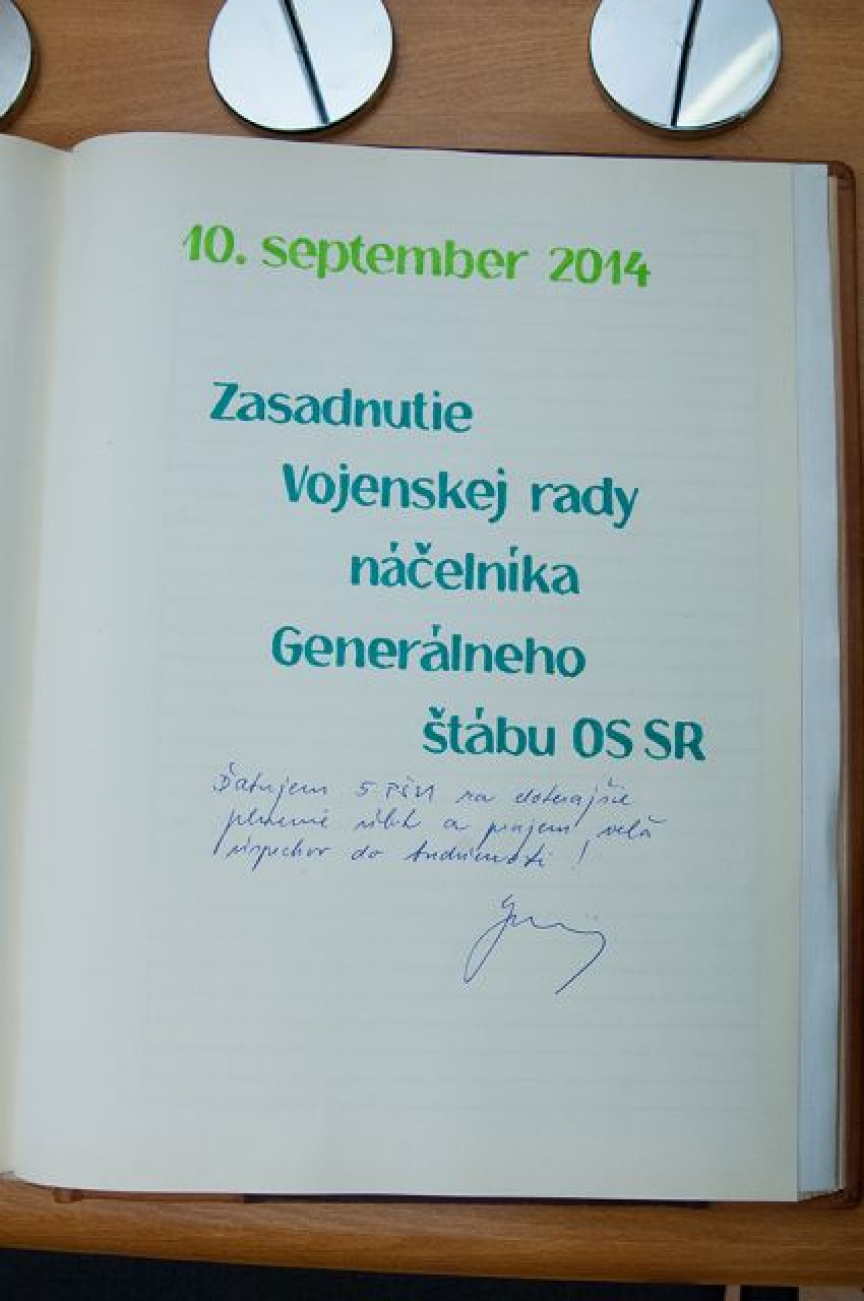 10. september 2014
Zasadnutie
Vojenskej rady
náčelníka
Generálneho
štábu OS SR
Ďakujem 5 PŠU za doterajšie
plnenie úloh a prajem veľa
úspechov do budúcnosti !